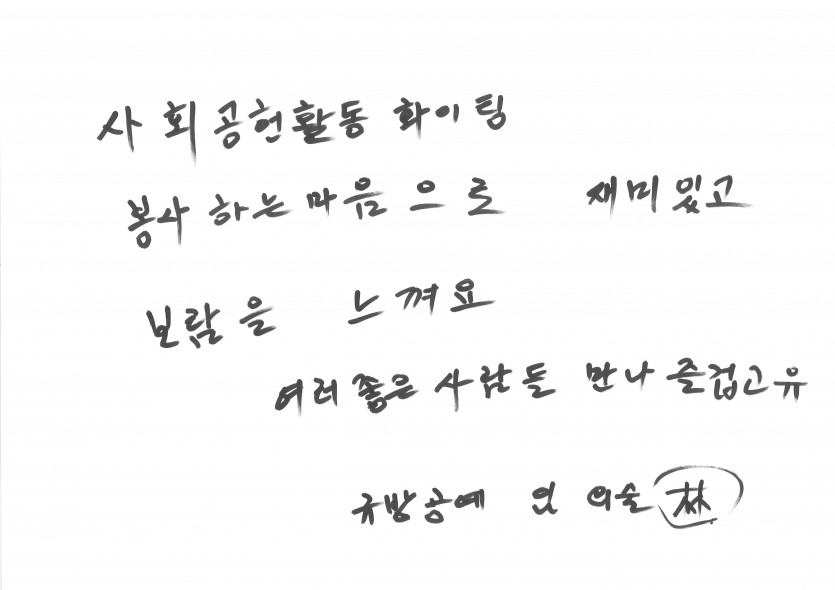 사회공헌활동 화이팅
봉사하는마음으로 재미있고
보람을 느껴요
여러좋은 사람들 만나 즐겁고유
규방공예 林